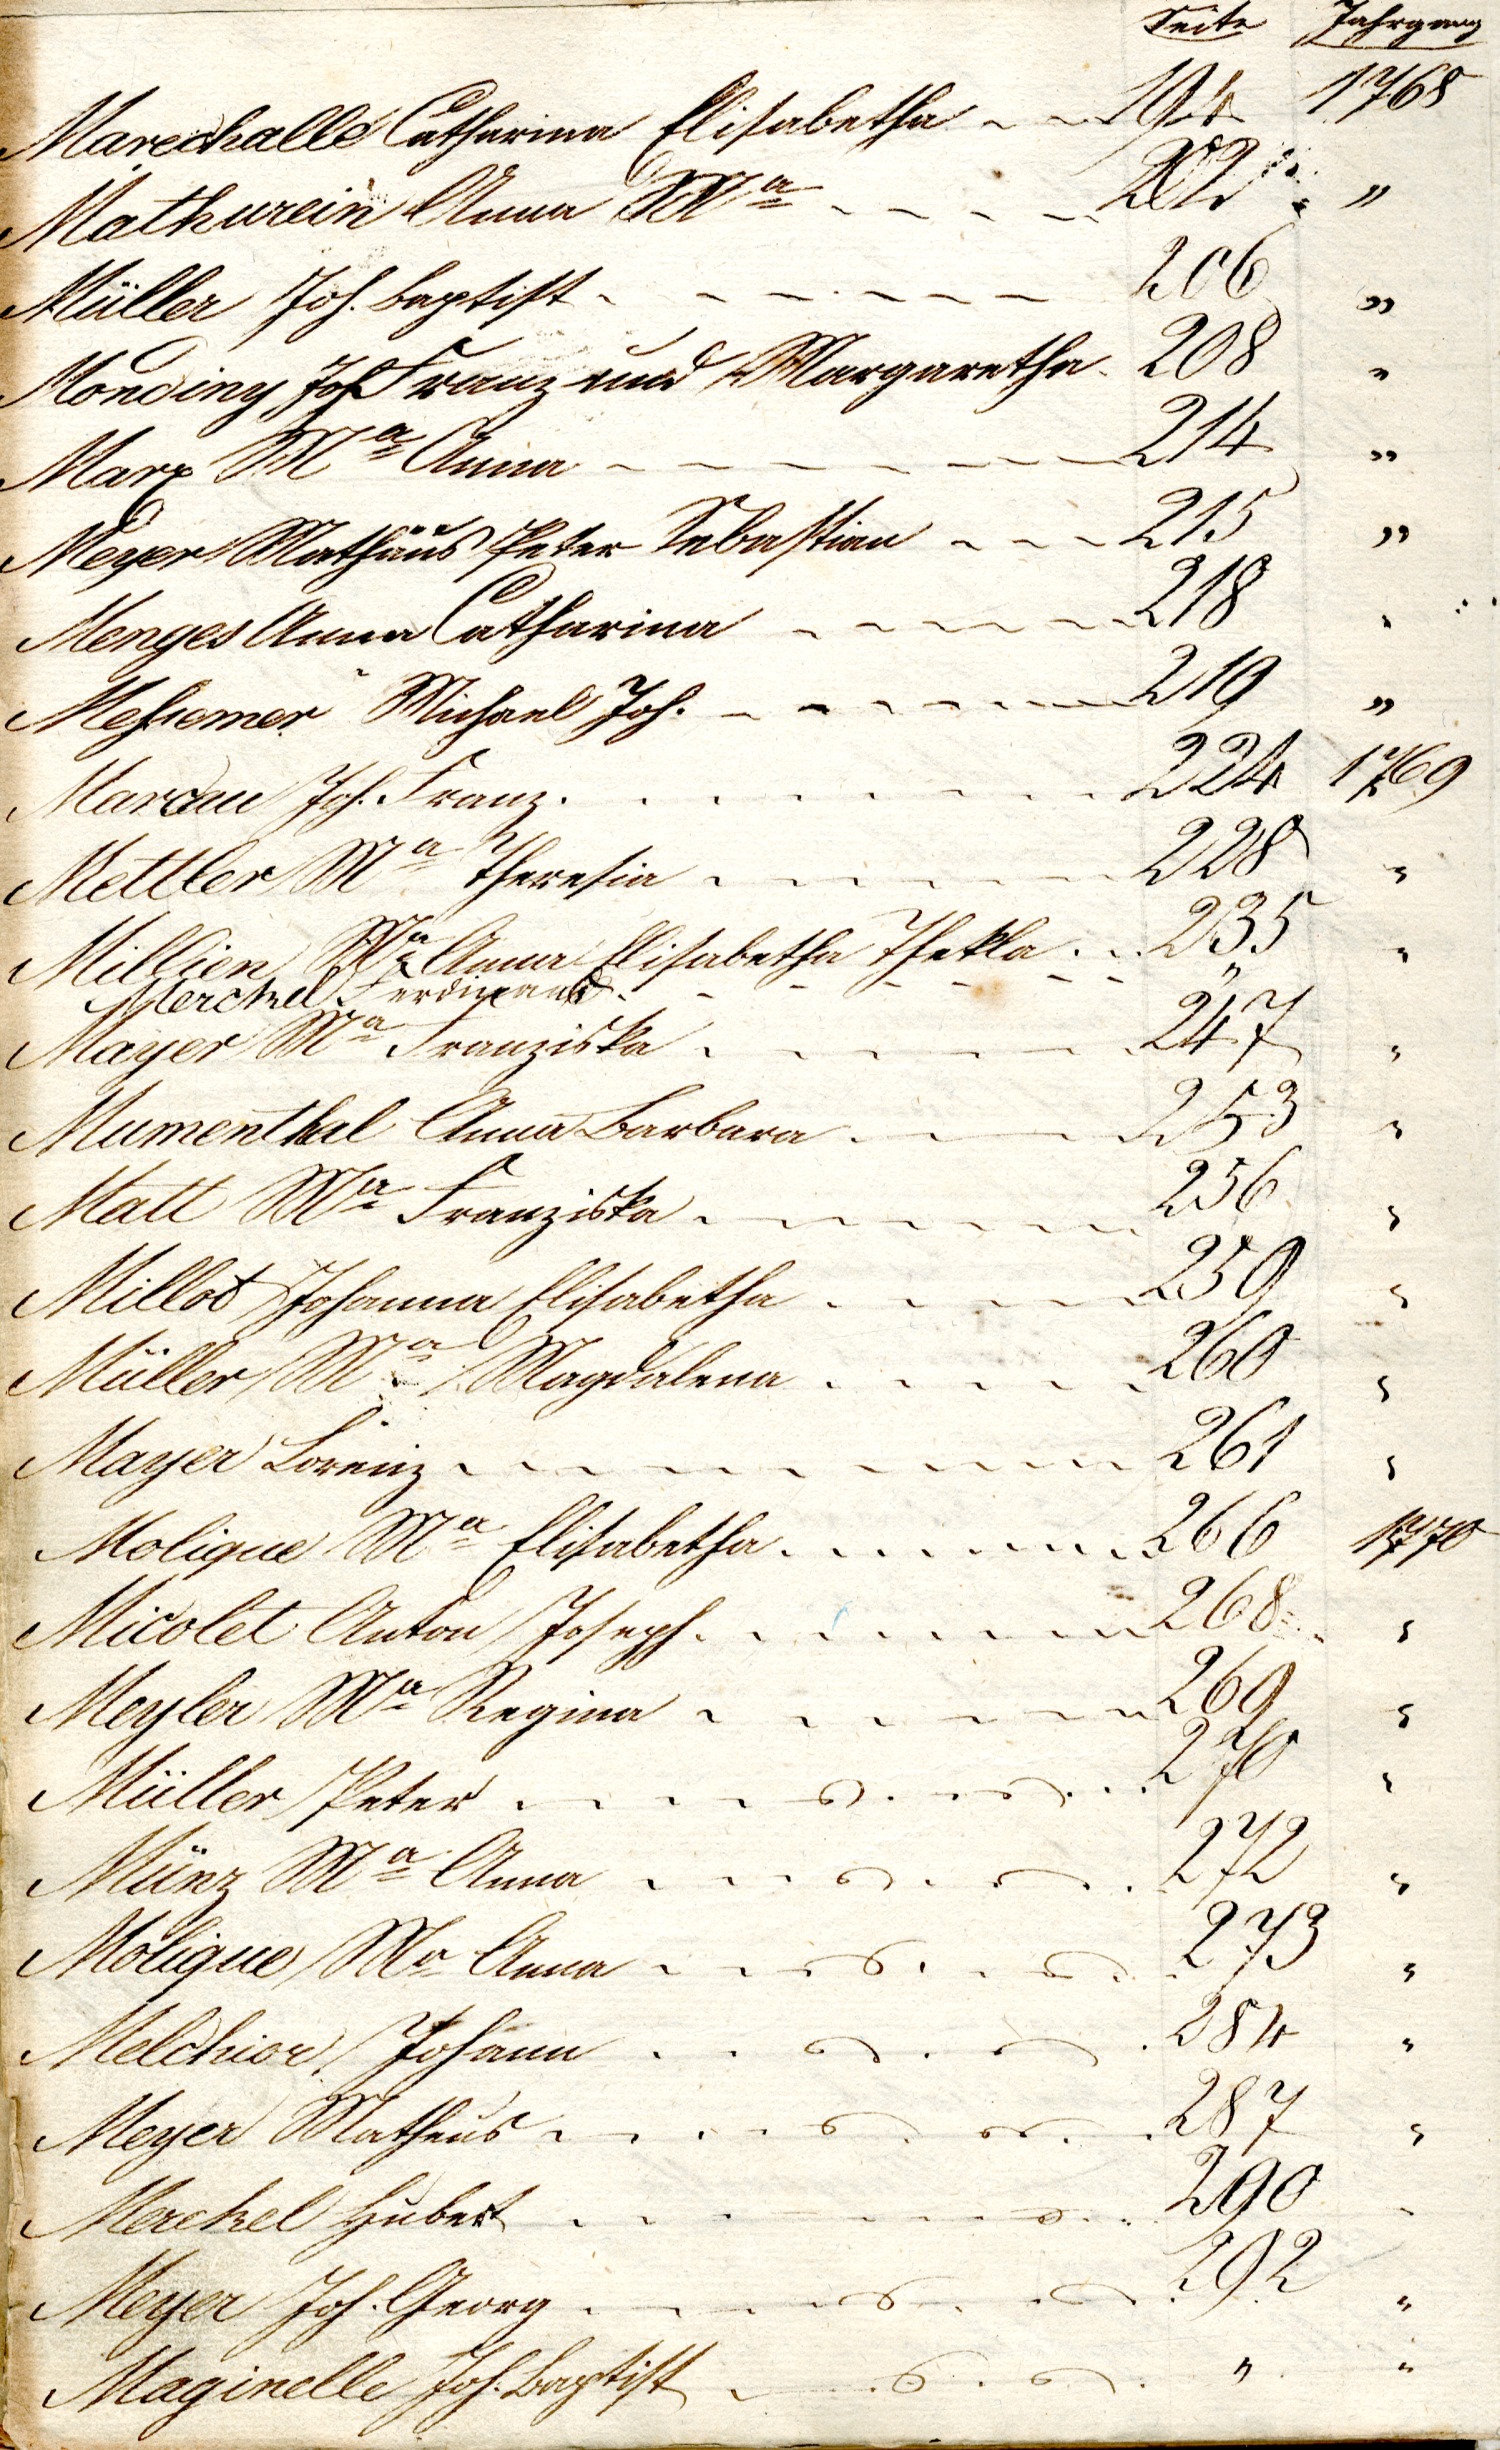 Seite Jahrgang
Marechalle Catharina Elisabetha 194 1768
Mathurein Anna Ma 202 "
Müller Joh. Baptist 206 "
Mondiny Joh Franz und Margaretha 208 "
Marx Ma Anna 214 "
Meyer Mathäus Peter Sebastian 215 "
Menges Anna Catharina 218 "
Meßemer Michael Joh. 219 "
Marcau Joh. Franz. 224 1769
Mettler Ma Theresia 228 "
Millien Ma Anna Elisabetha Thekla 235 "
Merckel Ferdinand "
Mayer Ma Franziska 247 "
Mumenthal Anna Barbara 253 "
Matt Ma Franziska 256 "
Millot Johanna Elisabetha 259 "
Müller Ma Magdalena 260 "
Mayer Lorenz 261 "
Molique Ma Elisabetha 266 1770
Micolet Anton Joseph 268 "
Meyler Ma Regina 269 "
Müller Peter 270 "
Münz Ma Anna 272 "
Molique Ma Anna 273 "
Melchior Johann 284 "
Meyer Matheus 287 "
Merckel Hubert 290 "
Meyer Joh. Georg 292 "
Maginelle Joh. Baptist " "